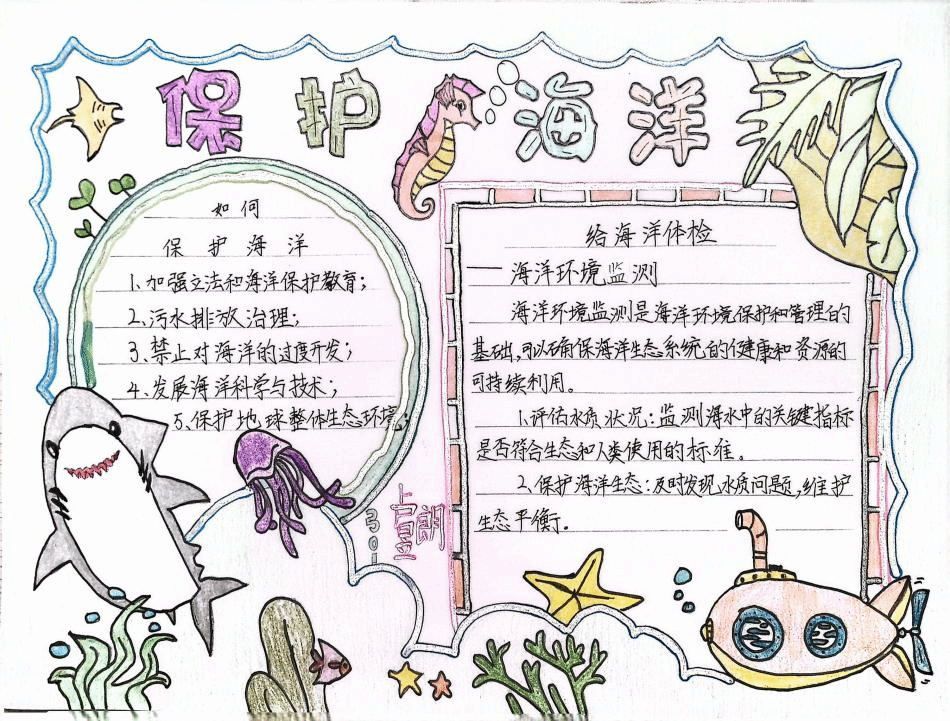 保护海洋
如何
保护海洋
1.加强立法和海洋保护教育；
2.污水排放治理；
3.禁止对海洋的过度开发；
4.发展海洋科学与技术；
5.保护地球整体生态环境；
给海洋体检
——海洋环境监测
海洋环境监测是海洋环境保护和管理的
基础，可以确保海洋生态系统的健康和资源的
可持续利用。
1.评估水质状况：监测海水中的关键指标
是否符合生态和人类使用的标准。
2.保护海洋生态：及时发现水质问题，维护
生态平衡。